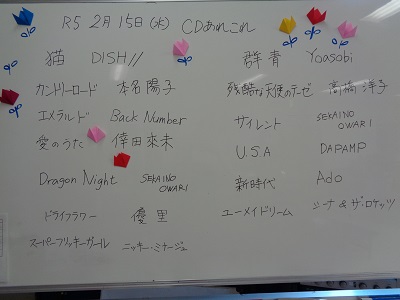 R5 2月15日(水) CDあれこれ
猫 DISH//
カントリーロード 本名陽子
エメラルド Back Number
愛のうた 倖田來未
Dragon Night SEKAINO OWARI
ドライフラワー 優里
スーパーフリッキーガール ニッキー・ミナージュ
群青 Yoasobi
残酷な天使のテーゼ 高橋洋子
サイレント SEKAINO OWARI
U.S.A DAPAMP
新時代 Ado
エーメイドリーム シーナ&ザ・ロケッツ